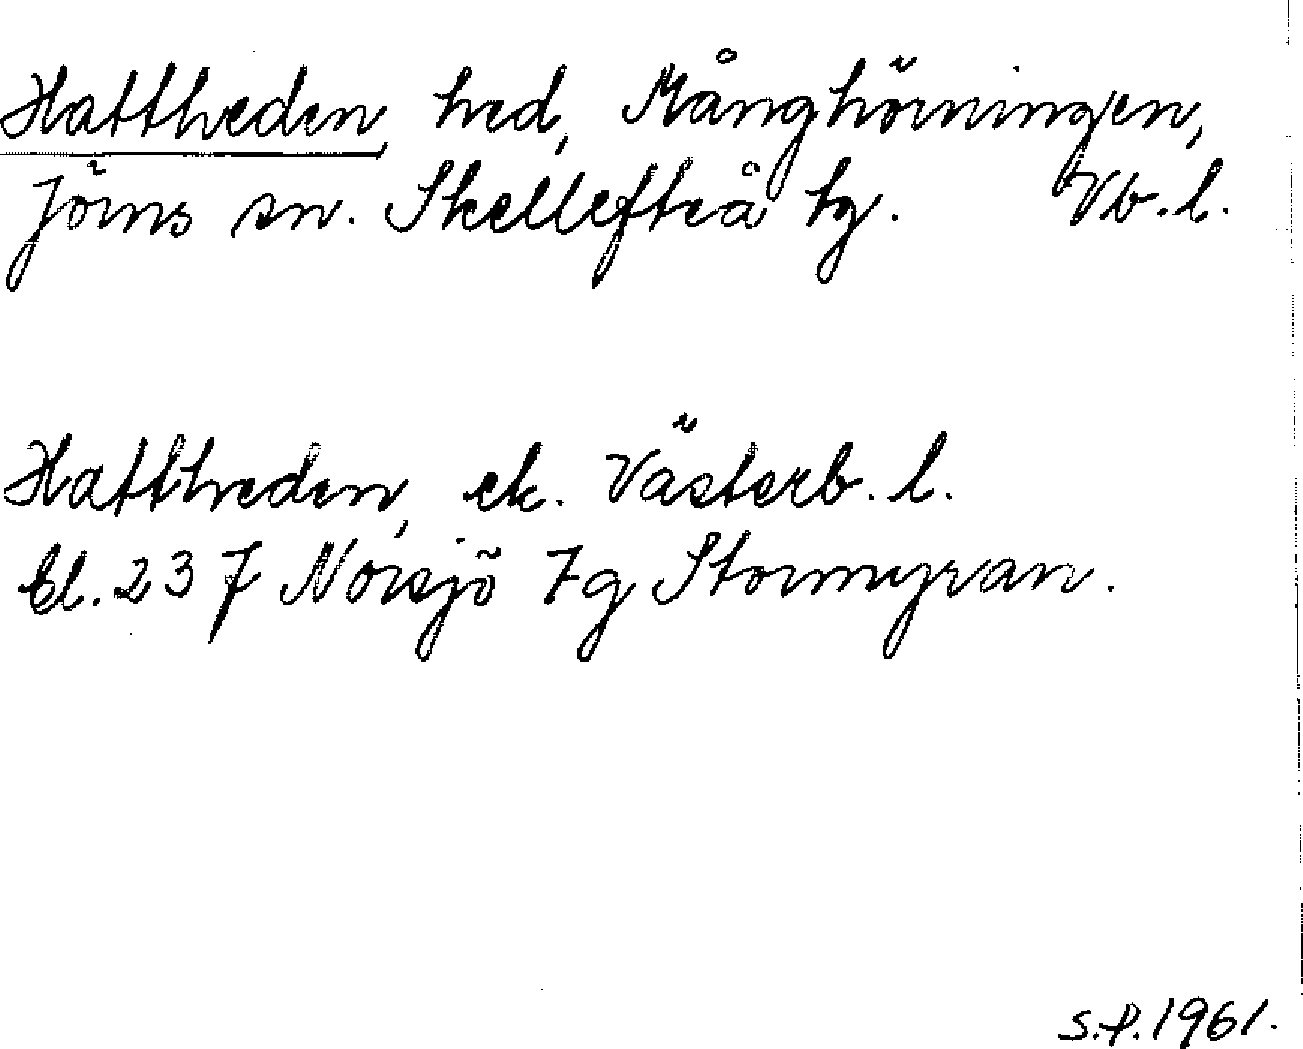 Hattheden, hed, Månghörningen,
Jörns sn. Skellefteå tg. Vb. l.
Hattheden, ek. Västerb. l.
Bl. 23 J Norsjö 7g Stormyran.
S.P. 1961.